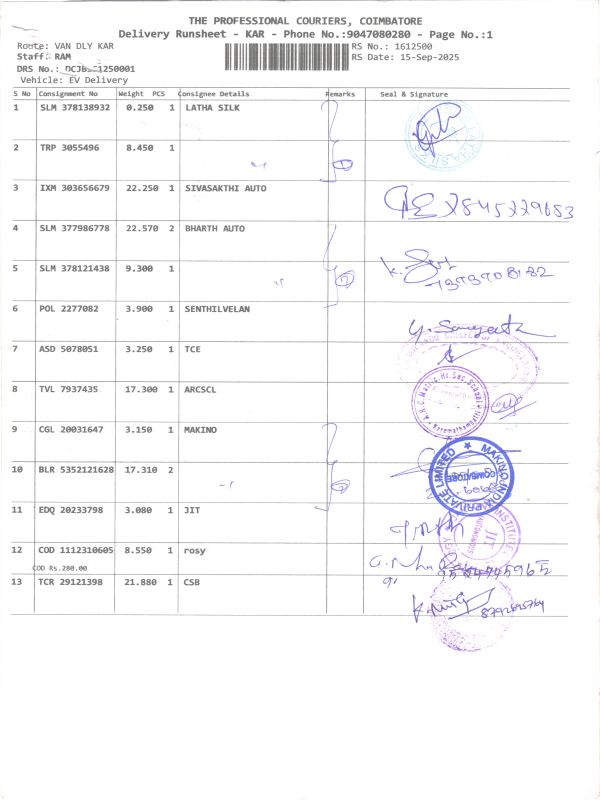 THE PROFESSIONAL COURIERS, COIMBATORE
Delivery Runsheet - KAR - Phone No.:9047080280 - Page No.:1
Route: VAN DLY KAR RS No.: 1612500
Staff: RAM RS Date: 15-Sep-2025
DRS No.: 1250001
Vehicle: EV Delivery
S No Consignment No Weight PCS Consignee Details Remarks Seal & Signature
1 SLM 378138932 0.250 1 LATHA SILK
2 TRP 3055496 8.450 1
3 IXM 303656679 22.250 1 SIVASAKTHI AUTO
7845779653
4 SLM 377986778 22.570 2 BHARTH AUTO
5 SLM 378121438 9.300 1
6 POL 2277082 3.900 1 SENTHILVELAN
7 ASD 5078051 3.250 1 TCE
8 TVL 7937435 17.300 1 ARCSCL
9 CGL 20031647 3.150 1 MAKINO
MAKINO INDIA PRIVATE LIMITED
COIMBATORE
10 BLR 5352121628 17.310 2
11 EDQ 20233798 3.080 1 JIT
INSTITUTE
JIT
AUTONOMOUS
12 COD 1112310605 8.550 1 rosy
COD Rs.280.00
13 TCR 29121398 21.880 1 CSB